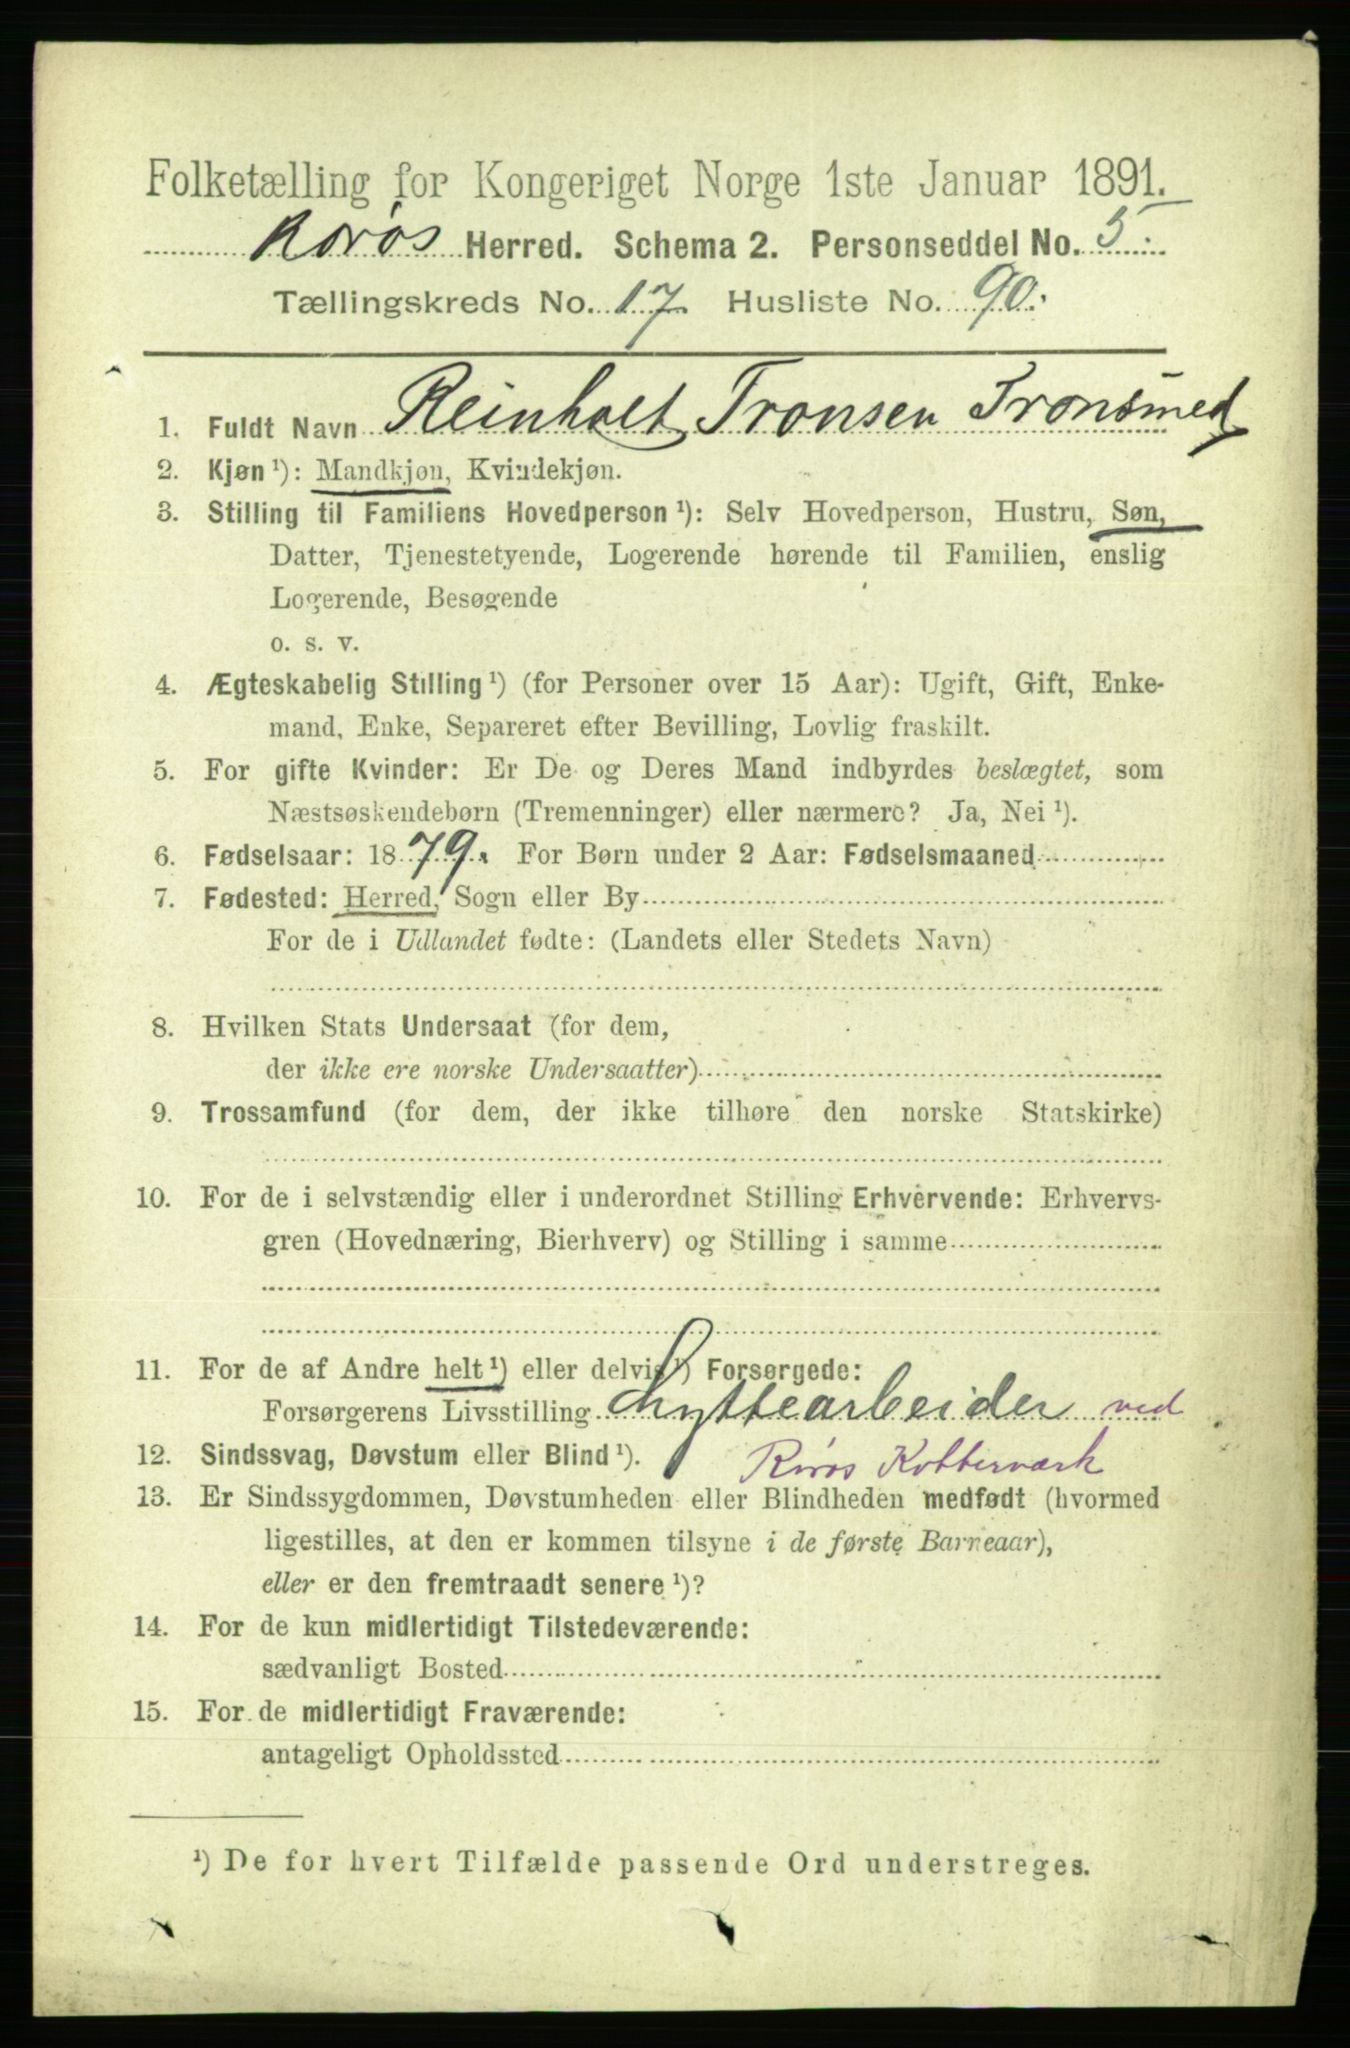 Folketælling for Kongeriget Norge 1ste Januar 1891.
Røros Herred. Schema 2. Personseddel No. 5.
Tællingskreds No. 17. Husliste No. 90.
1. Fuldt Navn Reinholt Tronsen Tronsmed
2. Kjøn ¹): Mandkjøn, Kvindekjøn.
3. Stilling til Familiens Hovedperson ¹): Selv Hovedperson, Hustru, Søn,
Datter, Tjenestetyende, Logerende hørende til Familien, enslig
Logerende, Besøgende
o. s. v.
4. Ægteskabelig Stilling ¹) (for Personer over 15 Aar): Ugift, Gift, Enke-
mand, Enke, Separeret efter Bevilling, Lovlig fraskilt.
5. For gifte Kvinder: Er De og Deres Mand indbyrdes beslægtet, som
Næstsøskendebørn (Tremenninger) eller nærmere? Ja, Nei ¹).
6. Fødselsaar: 1879. For Børn under 2 Aar: Fødselsmaaned
7. Fødested: Herred, Sogn eller By
For de i Udlandet fødte: (Landets eller Stedets Navn)
8. Hvilken Stats Undersaat (for dem,
der ikke ere norske Undersaatter)
9. Trossamfund (for dem, der ikke tilhøre den norske Statskirke)
10. For de i selvstændig eller i underordnet Stilling Erhvervende: Erhvervs-
gren (Hovednæring, Bierhverv) og Stilling i samme
11. For de af Andre helt ¹) eller delvis ¹) Forsørgede:
Forsørgerens Livsstilling Hyttearbeider ved
12. Sindssvag, Døvstum eller Blind ¹). Røros Kobberværk
13. Er Sindssygdommen, Døvstumheden eller Blindheden medfødt (hvormed
ligestilles, at den er kommen tilsyne i de første Barneaar),
eller er den fremtraadt senere ¹)?
14. For de kun midlertidigt Tilstedeværende:
sædvanligt Bosted
15. For de midlertidigt Fraværende:
antageligt Opholdssted
¹) De for hvert Tilfælde passende Ord understreges.